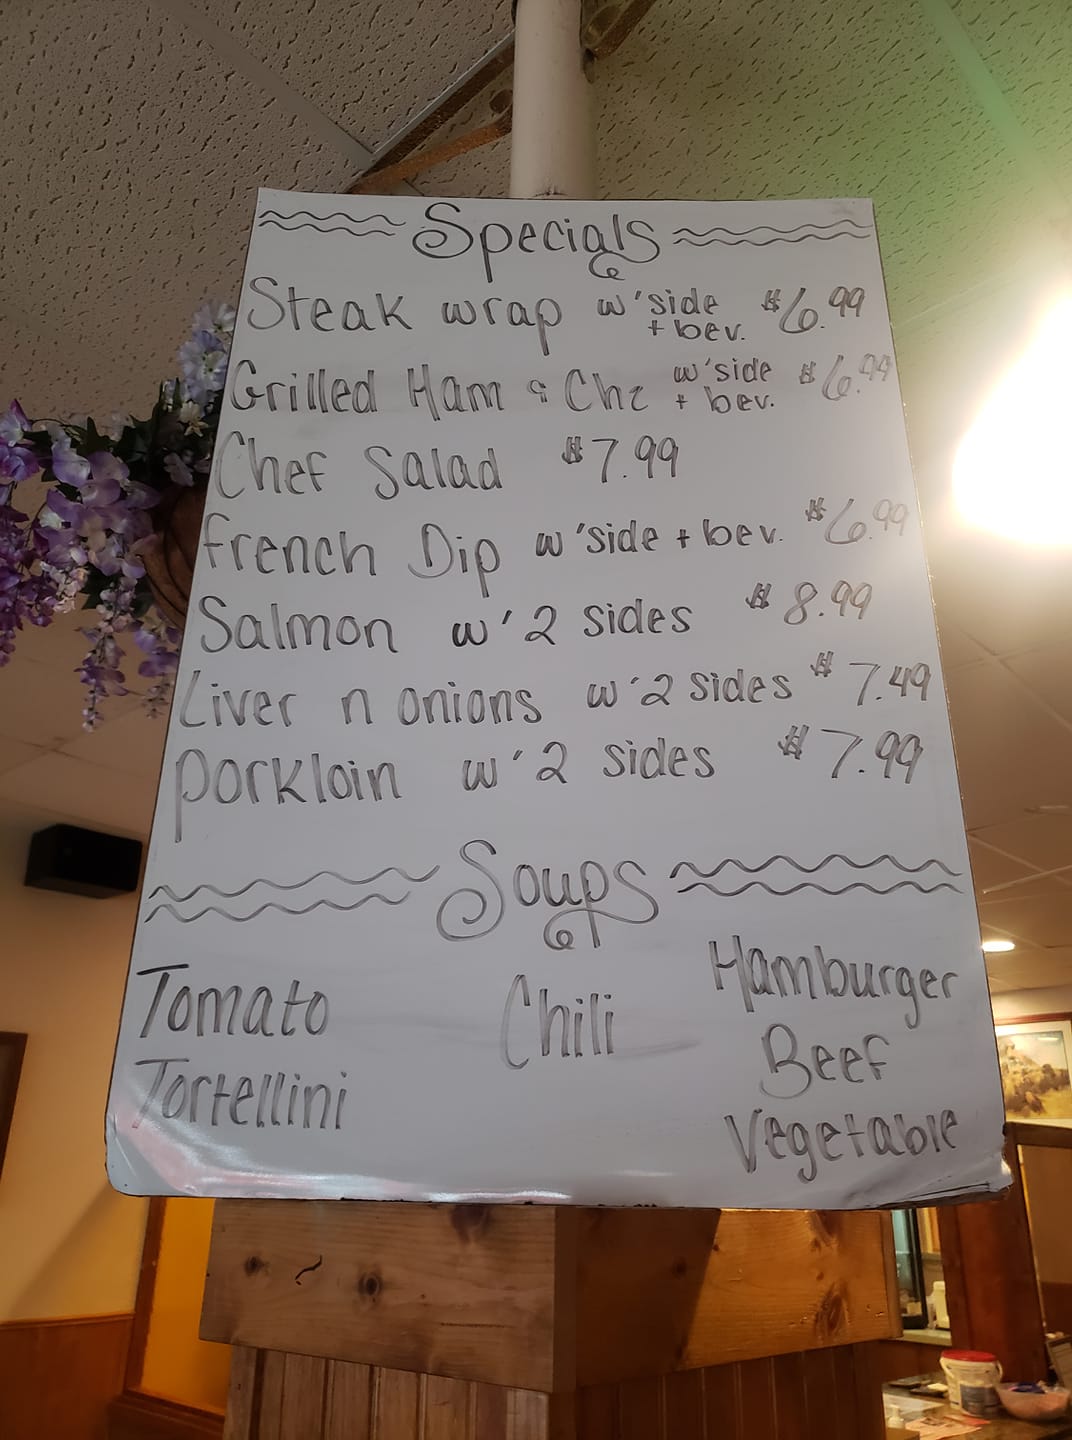 Specials
Steak wrap w' side + bev. $6.99
Grilled Ham & Chz w' side + bev. $6.99
Chef Salad $7.99
French Dip w' side + bev. $6.99
Salmon w' 2 sides $8.99
Liver n onions w' 2 sides $7.49
Porkloin w' 2 sides $7.99
Soups
Tomato Tortellini
Chili
Hamburger Beef Vegetable